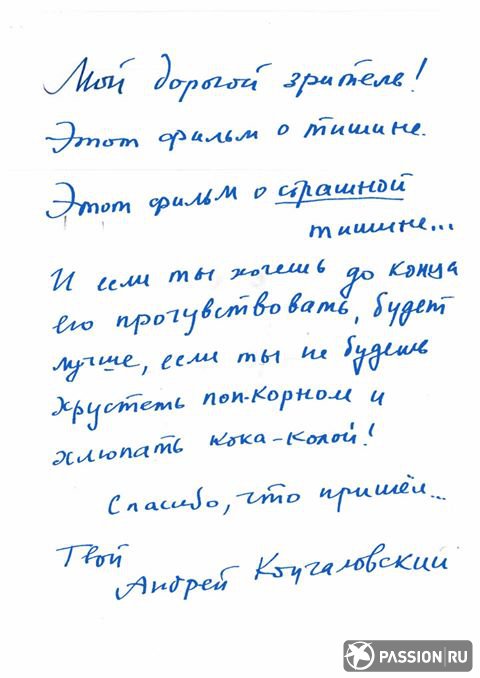 Мой дорогой зритель!
Этот фильм о тишине.
Этот фильм о страшной
тишине...
И если ты хочешь до конца
его прочувствовать, будет
лучше, если ты не будешь
хрустеть поп-корном и
хлюпать кока-колой!
Спасибо, что пришёл...
Твой
Андрей Кончаловский
PASSION|RU